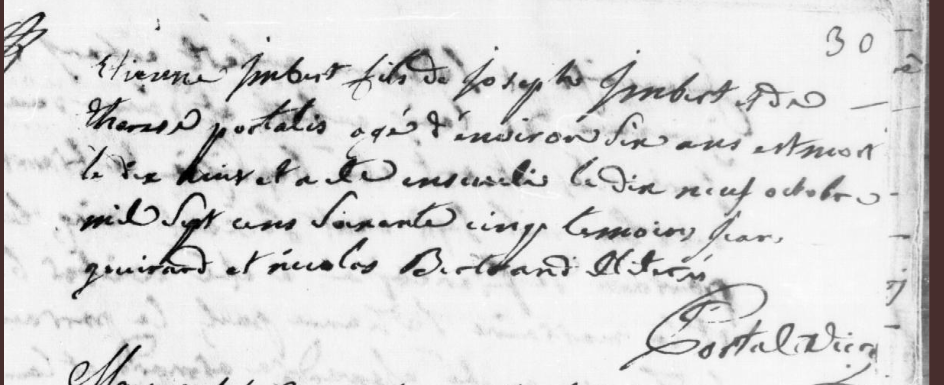 30
Etienne Imbert fils de Joseph Imbert et de
therese portalis agé d'environ six ans est mort
le dix huit et a eté enseveli le dix neuf octobre
mil sept cens soixante cinq temoins Jean
guirard et nicolas Bertrand illiterés
Portal vicre